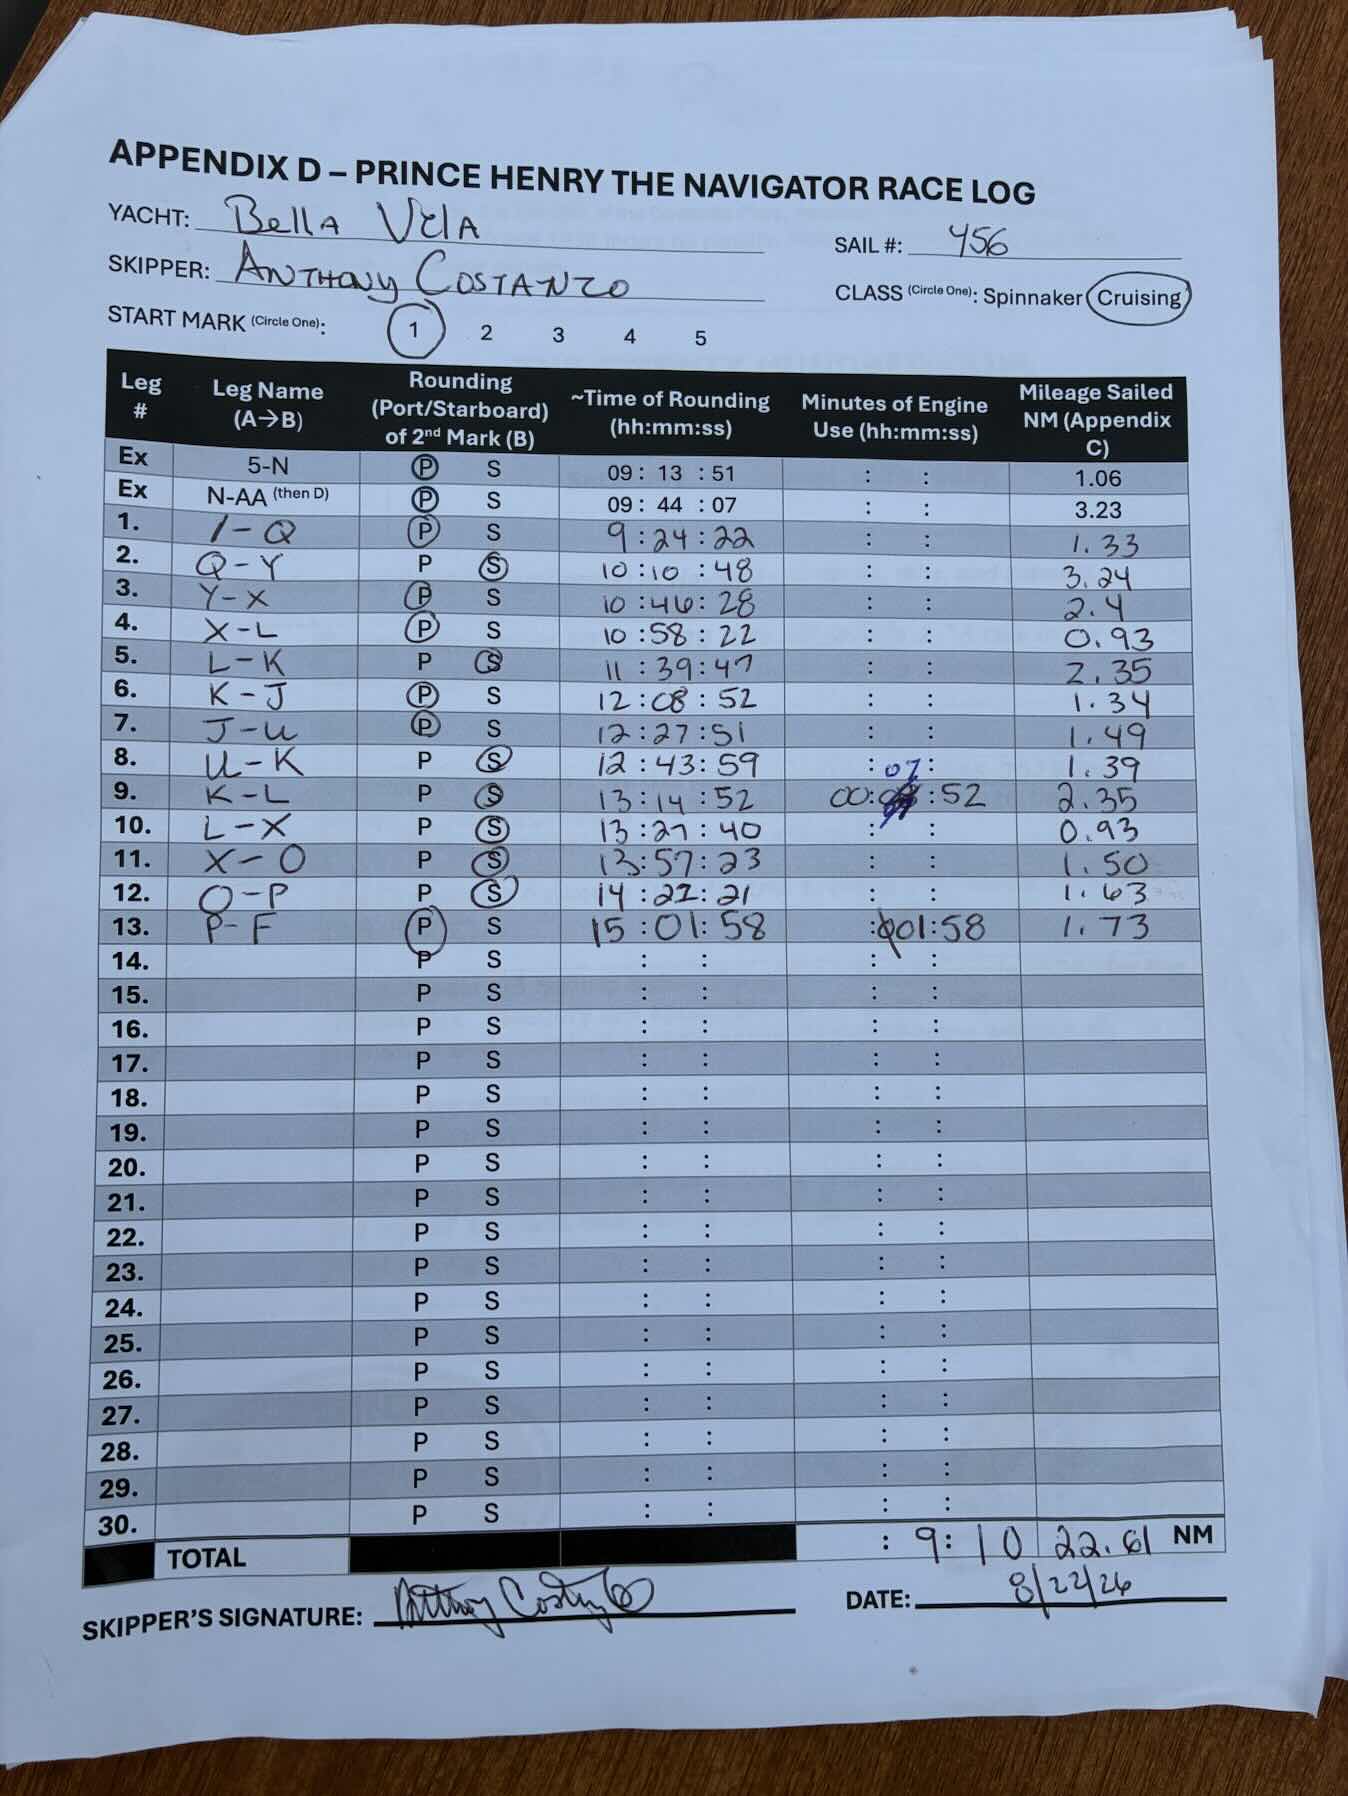 APPENDIX D – PRINCE HENRY THE NAVIGATOR RACE LOG
YACHT: Bella Vela
SAIL #: 456
SKIPPER: Anthony Costanzo
CLASS (Circle One): Spinnaker Cruising
START MARK (Circle One): 1 2 3 4 5
Leg # Leg Name (A→B) Rounding (Port/Starboard) of 2nd Mark (B) ~Time of Rounding (hh:mm:ss) Minutes of Engine Use (hh:mm:ss) Mileage Sailed NM (Appendix C)
Ex 5-N P S 09: 13 :51 : : 1.06
Ex N-AA (then D) P S 09: 44 :07 : : 3.23
1. 1-Q P S 9:24:22 : : 1.33
2. Q-Y P S 10:10:48 : : 3.24
3. Y-X P S 10:46:28 : : 2.4
4. X-L P S 10:58:22 : : 0.93
5. L-K P S 11:39:47 : : 2.35
6. K-J P S 12:08:52 : : 1.34
7. J-U P S 12:27:51 : : 1.49
8. U-K P S 12:43:59 : : 1.39
9. K-L P S 13:14:52 00:07:52 2.35
10. L-X P S 13:27:40 : : 0.93
11. X-O P S 13:57:23 : : 1.50
12. O-P P S 14:22:21 : : 1.63
13. P-F P S 15:01:58 :01:58 1.73
14. P S : : : :
15. P S : : : :
16. P S : : : :
17. P S : : : :
18. P S : : : :
19. P S : : : :
20. P S : : : :
21. P S : : : :
22. P S : : : :
23. P S : : : :
24. P S : : : :
25. P S : : : :
26. P S : : : :
27. P S : : : :
28. P S : : : :
29. P S : : : :
30. P S : : : :
TOTAL : 9:10 22.61 NM
SKIPPER'S SIGNATURE: Anthony Costanzo
DATE: 8/22/26